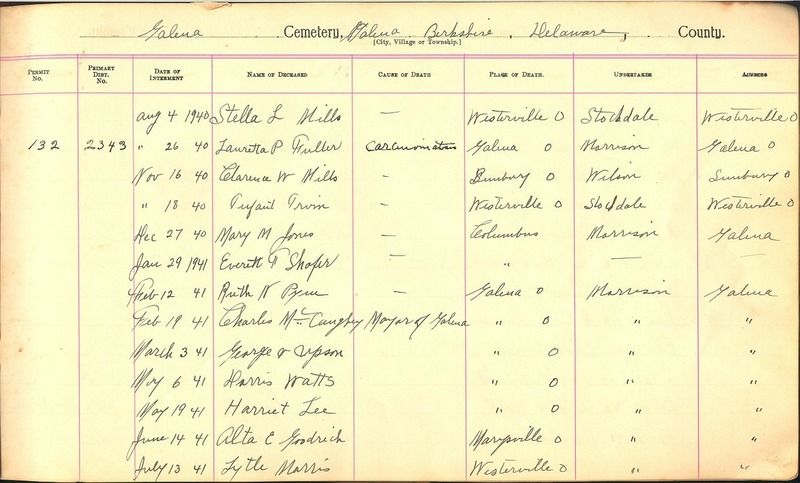 Galena Cemetery, Galena Berkshire, Delaware, County.
[City, Village or Township.]
Permit No. Primary Dist. No. Date of Interment Name of Deceased Cause of Death Place of Death. Undertaker Address
Aug 4 1940 Stella L Mills — Westerville O Stockdale Westerville O
132 2343 " 26 40 Lauretta P Fuller Carcinomatosis Galena O Morrison Galena O
Nov 16 40 Clarence W Mills — Sunbury O Wilson Sunbury O
" 18 40 Infant Irvin — Westerville O Stockdale Westerville O
Dec 27 40 Mary M Jones — Columbus Morrison Galena
Jan 29 1941 Everett F Shafer — " — —
Feb 12 41 Ruth N — Galena O Morrison Galena
Feb 19 41 Charles McCaughey Mayor of Galena " O " "
March 3 41 George Upson " O " "
May 6 41 Harris Watts " O " "
May 19 41 Harriet Lee " O " "
June 14 41 Alta E Goodrich Marysville O " "
July 13 41 Lytle Harris Westerville O " "